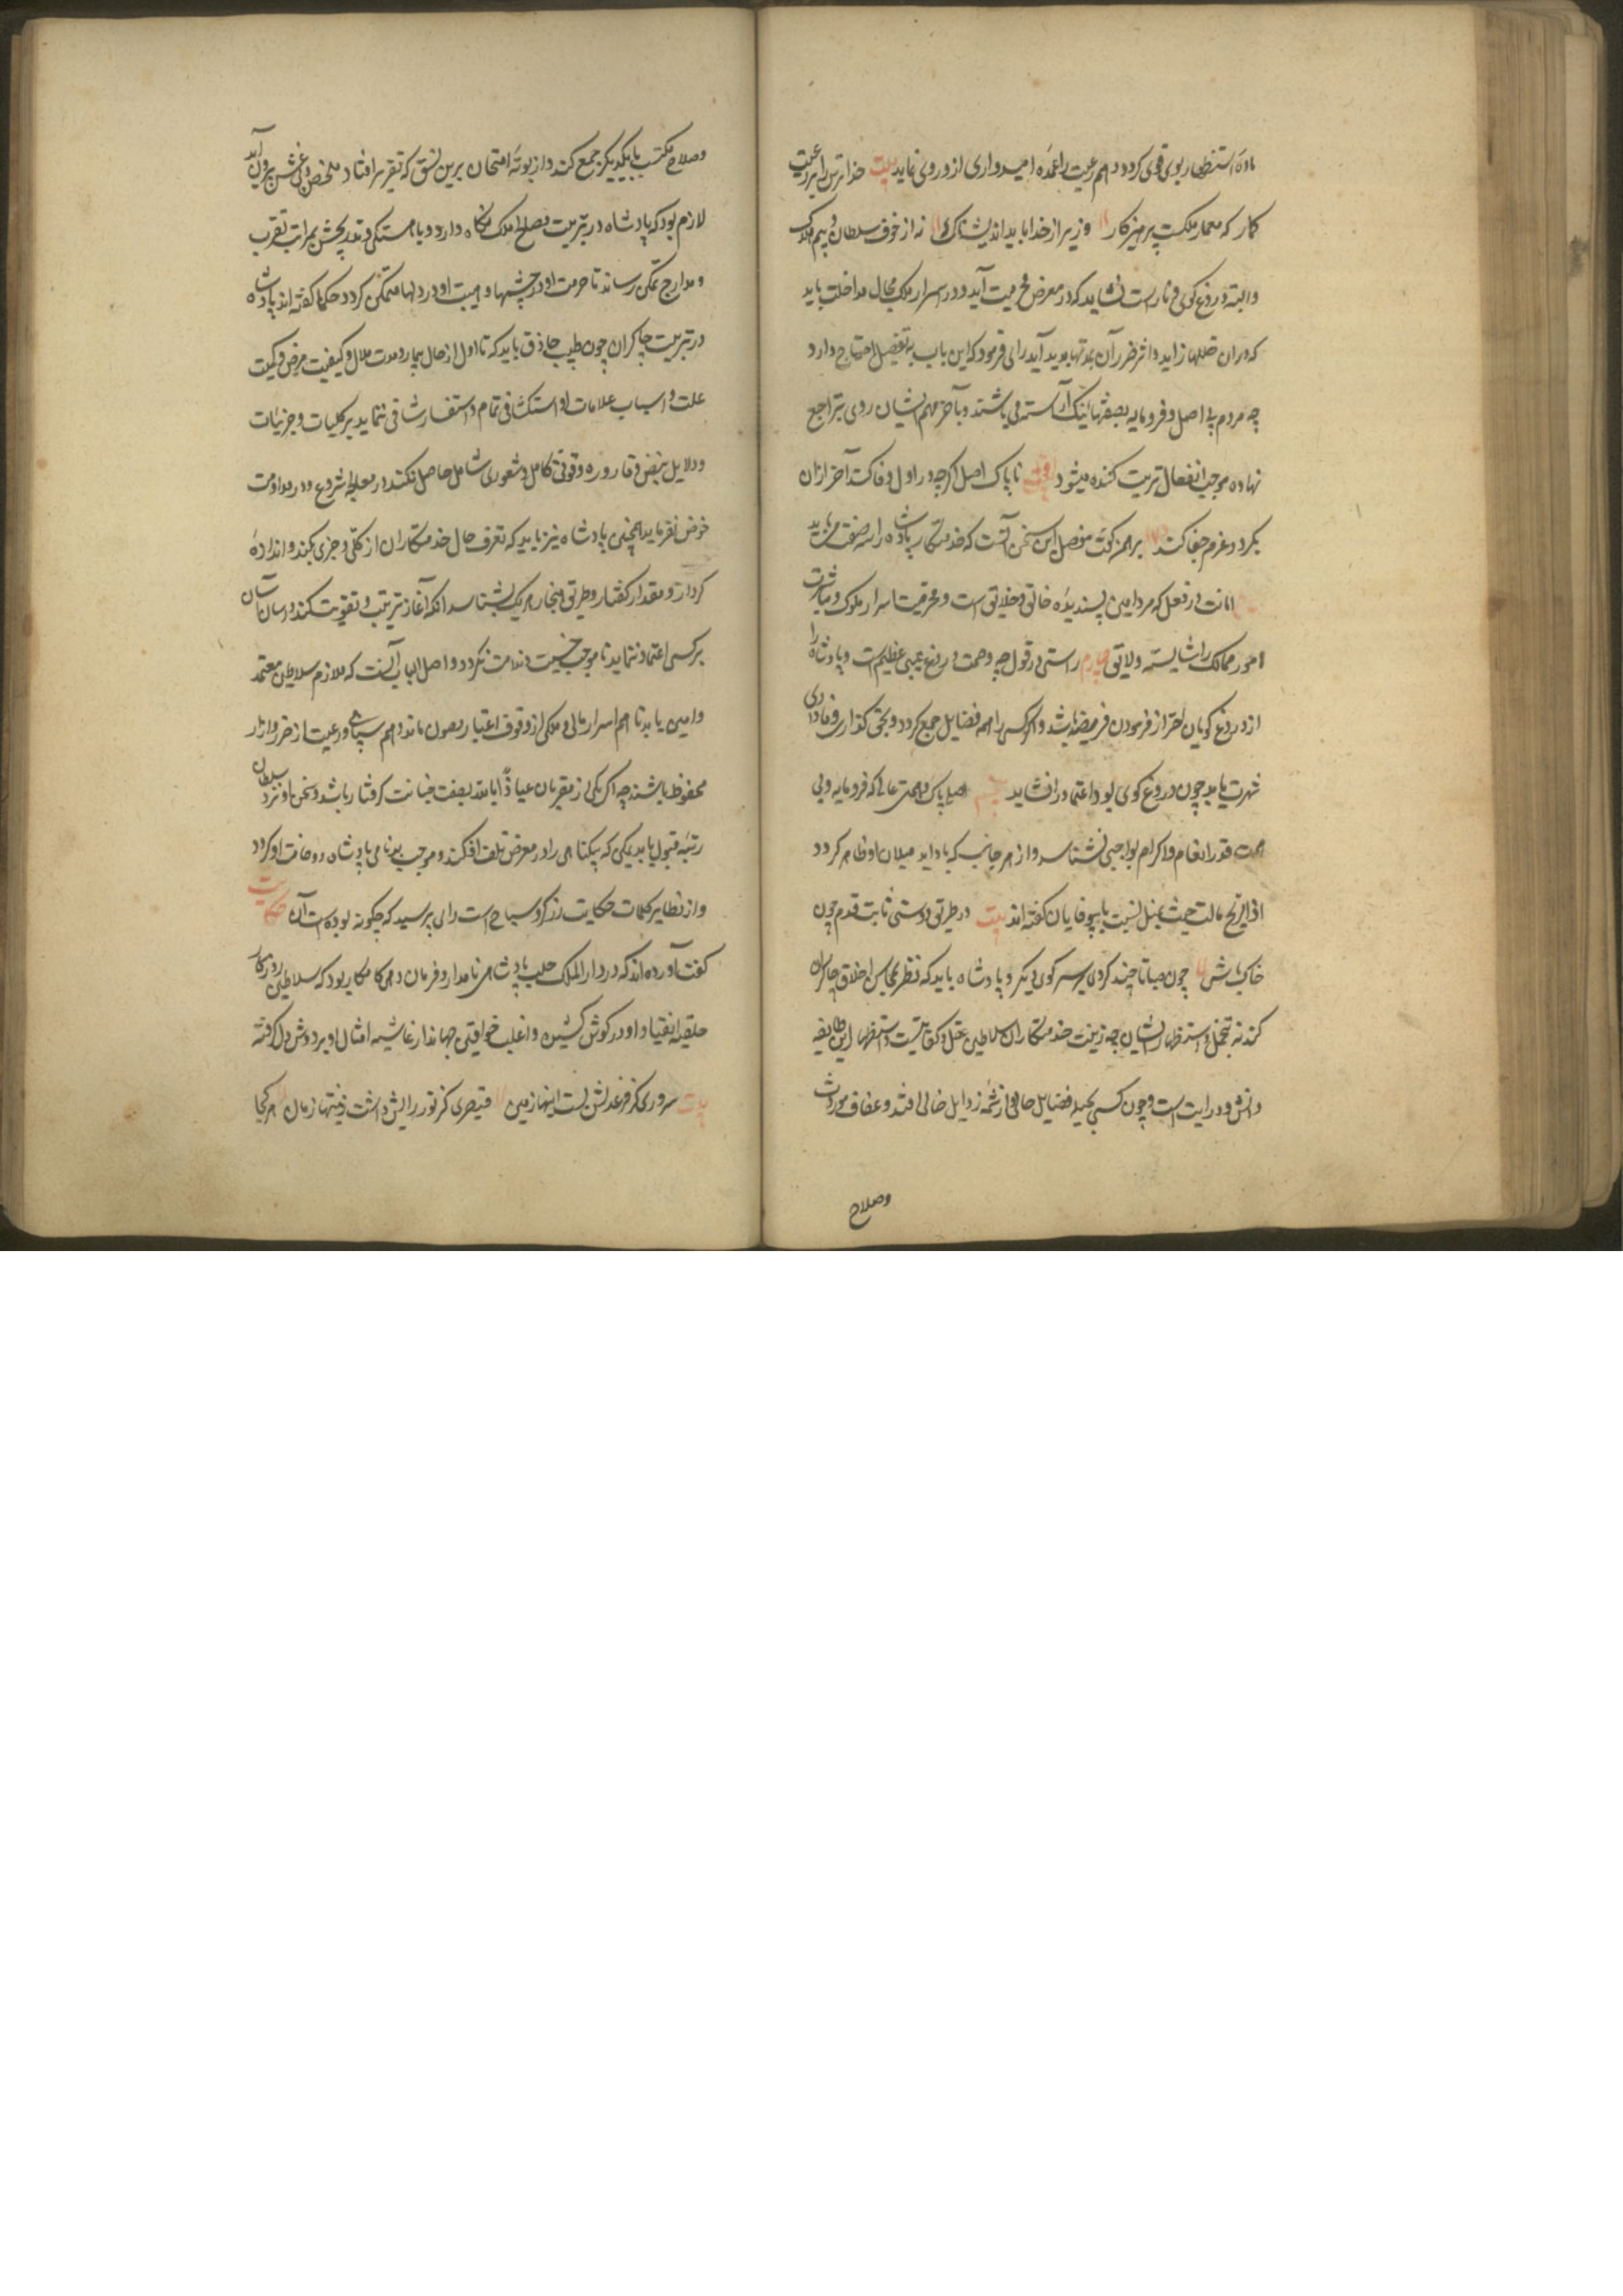 ماده استظهار بوی قوی کردد و هم رعیت را عمده امیدواری ازو روی نماید بیت خدا ترس را بر رعیت
کمار که معمار ملکست پرهیزکار وزیر از خدا باید اندیشناک نه از خوف سلطان و بیم هلاک
و البته دروغ کوی و ناراست نشاید که در معرض محرمیت آید و در اسرار ملک مجال مداخلت یابد
که ازان خللها زاید و اثر ضرر آن بمدتها پدید آید رای فرمود که این باب به تفصیل احتیاج دارد
چه مردم بی اصل و فرومایه بصفتهای نیک آراسته می باشند و بآخر مهم ایشان روی بتراجع
نهاده موجب انفعال تربیت کننده میشود ناپاک اصل اکرچه در اول وفا کند آخر ازان
بکردد و عزم جفا کند برهمن کفت مفصل این سخن آنست که خدمتکار پادشاه را سه صفت می باید
امانت در فعل که مرد امین پسندیده خالق و خلایق است و محرمیت اسرار ملوک و مباشرت
امور ممالک را شایسته و لایق راستی در قول چه وصمت دروغ عیبی عظیم است و پادشاه را
از دروغ کویان احتراز فرمودن فریضه باشد و اکر کسی را همه فضایل جمع کردد و بحق کذاری و وفاداری
شهرت یابد چون دروغ کوی بود اعتماد را نشاید اصل پاک و همت عالی که فرومایه و بی
همت قدر انعام و اکرام بواجبی نشناسد و از هر جانب که باد آید میلان او ظاهر کردد
اذا الریح مالت نسبت با بیوفایان کفته اند بیت در طریق دوستی ثابت قدم چون
خاک باش چون صبا تا چند کردی بر سر کوی دیکر و پادشاه باید که نظر بمحاسن اخلاق چاکران
کند نه بتجمل و استظهار ایشان چه زینت خدمتکاران سلاطین عقل و کفایتست و استظهار این طایفه
دانش و درایت است و چون کسی بحلیه فضایل حالی و از رذایل خالی افتد و عفاف موروث
وصلاح
وصلاح مکتسب با یکدیکر جمع کند و از بوته امتحان برین نسق که تقریر افتاد مخلص و بی غش بیرون آید
لازم بود که پادشاه در تربیت مصلح املاک نکاه دارد و بآهستکی و تدریجش بمراتب تقرب
و مدارج تمکن رساند تا حرمت او در چشمها و هیبت او در دلها متمکن کردد و حکما کفته اند پادشاه
در تربیت چاکران چون طبیب حاذق باید که تا اول از حال بیمار و مدت ملال و کیفیت مرض و کمیت
علت و اسباب علامات او استکشافی تمام و استفسار شافی ننماید بر کلیات و جزئیات
و دلایل نبض و قاروره وقوفی کامل و شعوری شامل حاصل نکند در معالجه شروع و در مداومت
خوض نفرماید همچنین پادشاه نیز باید که تعرف حال خدمتکاران از کلی و جزی بکند و اندازه
کردار و مقدار کفتار و طریق هنجار هر یک بشناسد آنکه آغاز تربیت و تقویت کند و آسان آسان
بر کسی اعتماد ننماید تا موجب خیبت و ندامت نکردد و اصل الباب آنست که ملازم سلاطین معتمد
و امین باید تا هم اسرار مالی و ملکی از وقوف اغیار مصون ماند و هم سپاهی و رعیت از ضرر و آزار
محفوظ باشند چه اکر یکی از مقربان عیاذاً بالله بصفت خیانت کرفتار باشد و سخن او نزد سلطان
رتبه قبول یابد یمکن که بیکناهی را در معرض تلف افکند و موجب بدنامی پادشاه و وخامت او کردد
و از نظایر کلمات حکایت زرکر و سیاح است رای پرسید که چکونه بوده است آن حکایت
کفت آورده اند که در دارالملک حلب پادشاهی نامدار و فرمان دهی کامکار بود که سلاطین روزکار
حلقه انقیاد او در کوش کشیده و اغلب خواقین جهاندار غاشیه امتثال او بر دوش دل کرفته
بیت سروری کز فر عدلش بست زمین قیصری کز نور رایش داشت زینتها زمان هر کجا